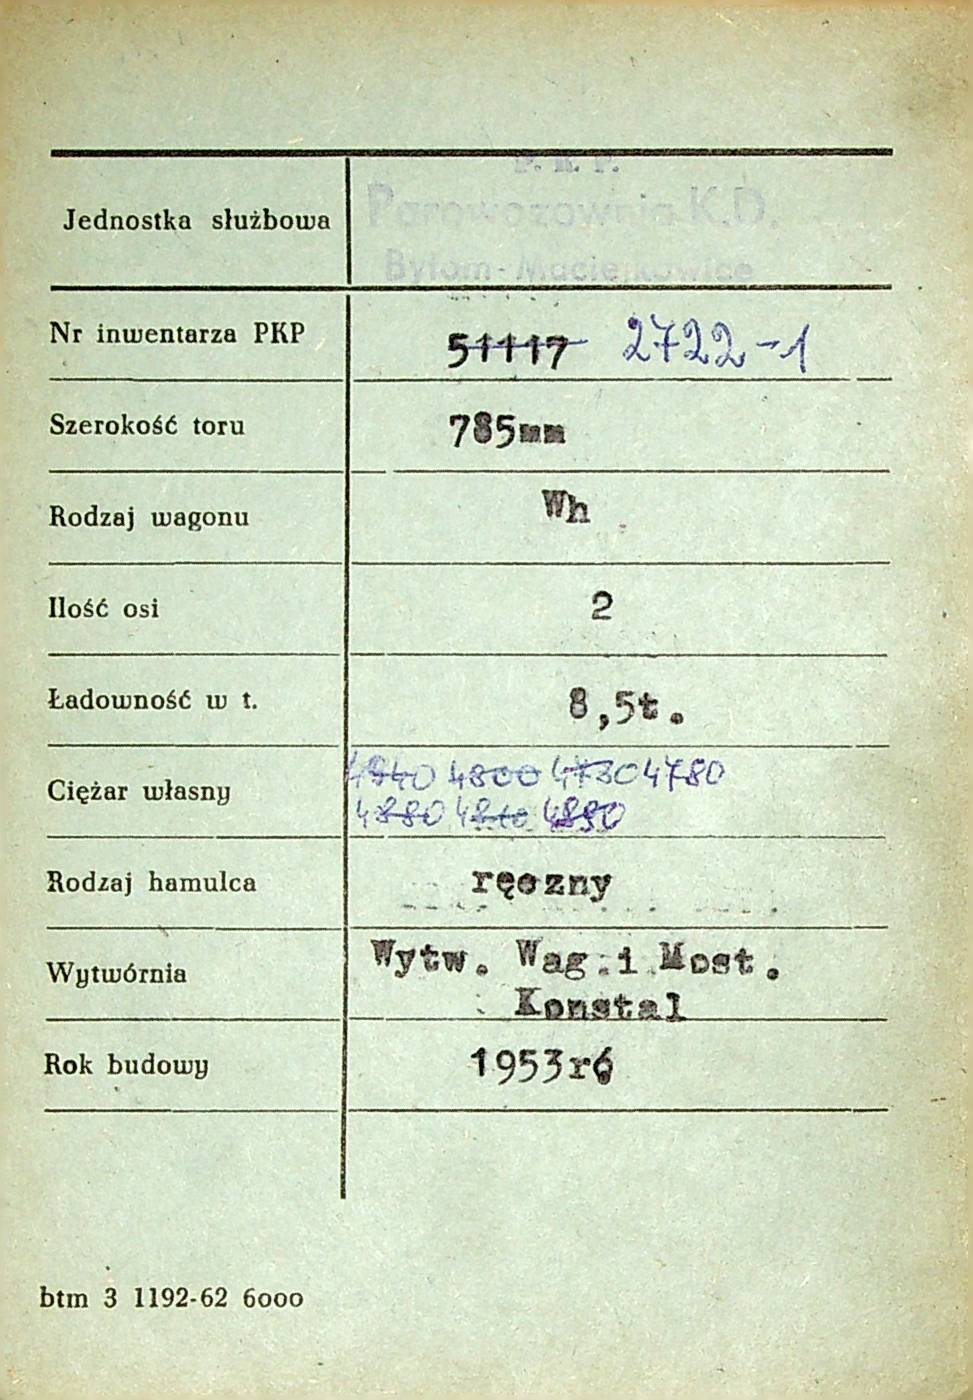 P. K. P.
Jednostka służbowa Parowozownia K.D.
Bytom-Maciejkowice
Nr inwentarza PKP 51117 2722-1
Szerokość toru 785mm
Rodzaj wagonu Wh
Ilość osi 2
Ładowność w t. 8,5t.
4940 4800 4730 4780
Ciężar własny
4880 4840 4890
Rodzaj hamulca ręczny
Wytw. Wag.i Most.
Wytwórnia
Konstal
Rok budowy 1953r
btm 3 1192-62 6000